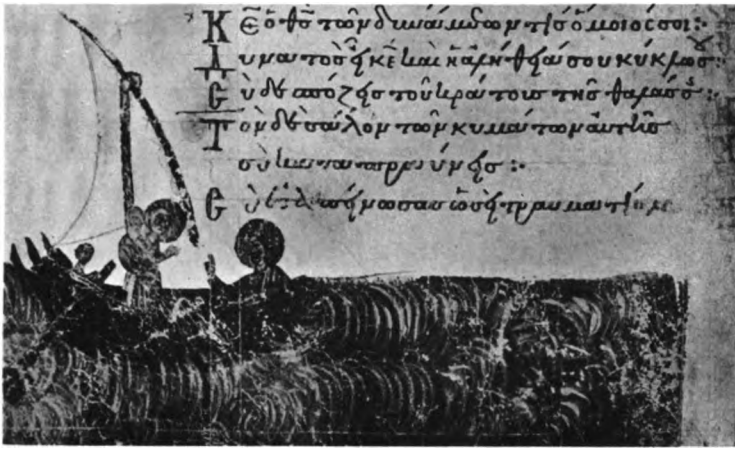 Κ̅Ε̅ ὁ θ̅ς̅ τῶν δυνάμεων τίς ὅμοιός σοι:
Δυνατὸς εἶ κ̅ε̅ καὶ ἡ ἀλήθειά σου κύκλῳ σου:
Σὺ δεσπόζεις τοῦ κράτους τῆς θαλάσσης:
Τὸν δὲ σάλον τῶν κυμάτων αὐτῆς
σὺ καταπραΰνεις:
Σὺ ἐταπείνωσας ὡσεὶ